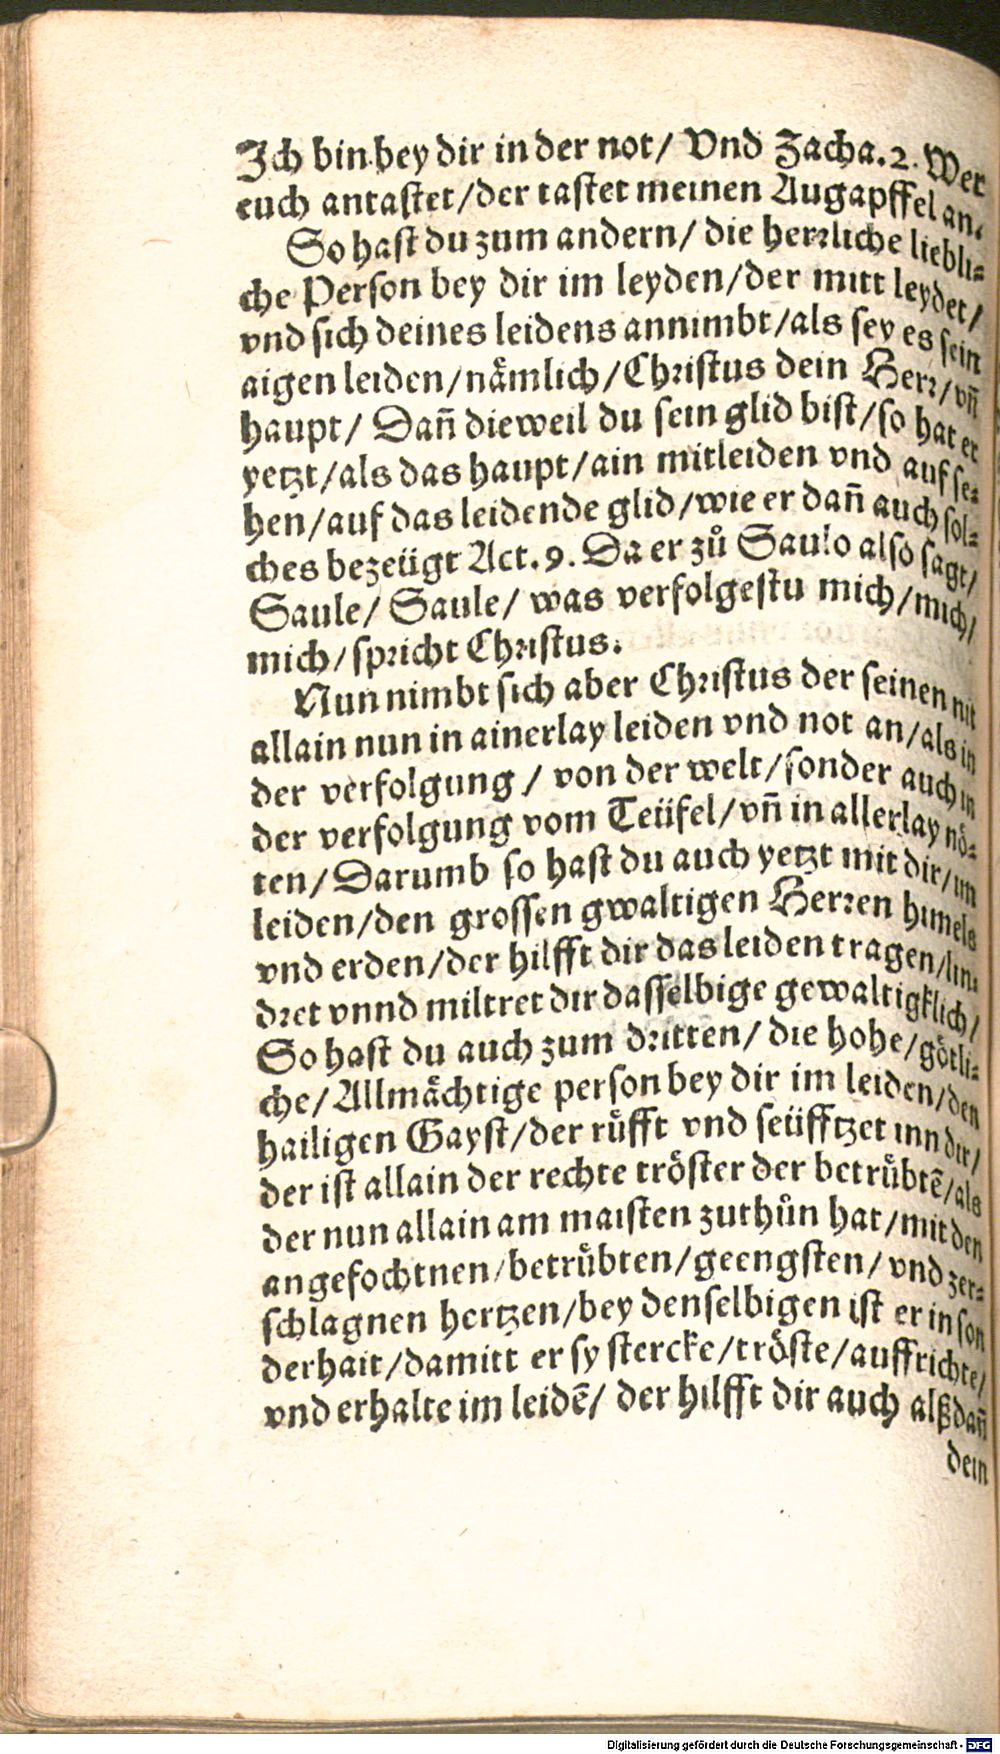 Ich bin bey dir in der not/ Vnd Zacha. 2. Wer
euch antastet/der tastet meinen Augapffel an.
So hast du zum andern/ die herrliche liebli-
che Person bey dir im leyden/der mitt leydet/
vnd sich deines leidens annimbt/als sey es sein
aigen leiden/nämlich/Christus dein Herr/vñ
haupt/ Dañ dieweil du sein glid bist/so hat er
yetzt/als das haupt/ain mitleiden vnd auf se-
hen/auf das leidende glid/wie er dañ auch sol-
ches bezeügt Act. 9. Da er zů Saulo also sagt/
Saule/ Saule/ was verfolgestu mich/mich/
mich/spricht Christus.
Nun nimbt sich aber Christus der seinen nit
allain nun in ainerlay leiden vnd not an/als in
der verfolgung/ von der welt/sonder auch in
der verfolgung vom Teüfel/vñ in allerlay nö-
ten/Darumb so hast du auch yetzt mit dir/im
leiden/den grossen gwaltigen Herren himels
vnd erden/der hilfft dir das leiden tragen/lin-
dret vnnd miltret dir dasselbige gewaltigklich/
So hast du auch zum dritten/ die hohe/götli-
che/Allmächtige person bey dir im leiden/den
hailigen Gayst/der růfft vnd seüfftzet inn dir/
der ist allain der rechte tröster der betrůbtẽ/als
der nun allain am maisten zuthůn hat/mit den
angefochtnen/betrůbten/geengsten/vnd zer-
schlagnen hertzen/bey denselbigen ist er in son
derhait/damitt er sy stercke/tröste/auffrichte/
vnd erhalte im leidẽ/ der hilfft dir auch alßdañ
dein
Digitalisierung gefördert durch die Deutsche Forschungsgemeinschaft - DFG